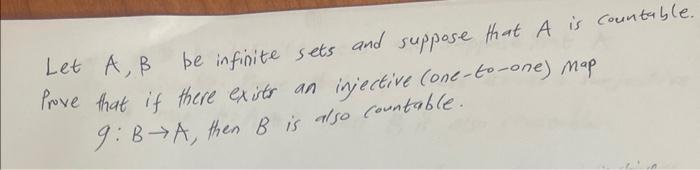 Let A, B be infinite sets and suppose that A is countable.
Prove that if there exists an injective (one-to-one) map
g: B → A, then B is also countable.